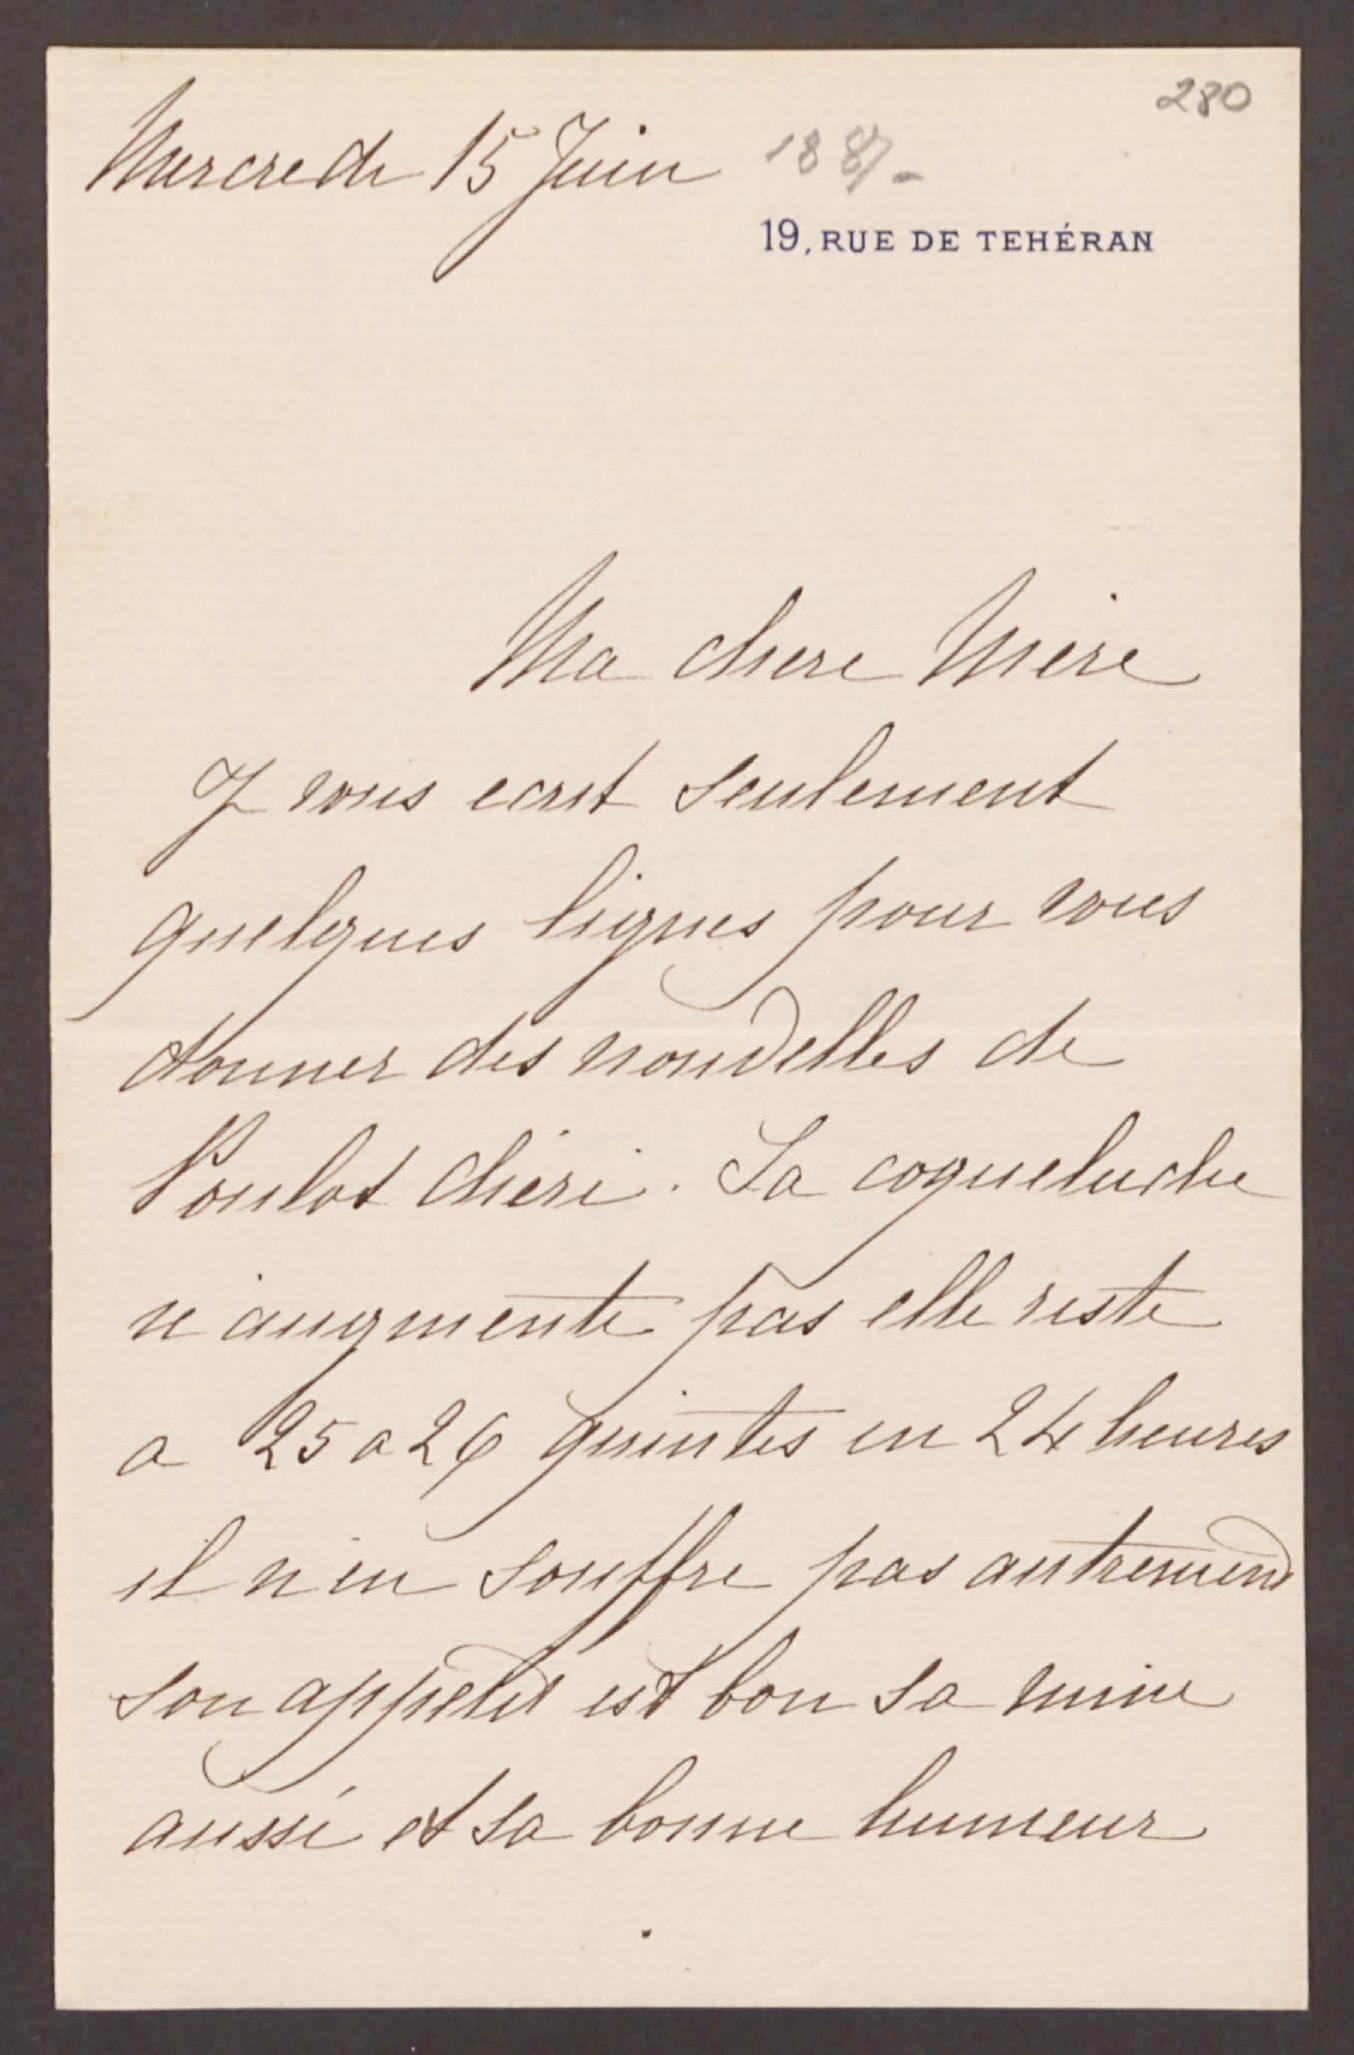 280
Mercredi 15 Juin 1887-
19, RUE DE TEHÉRAN
Ma chere Mère
Je vous ecrit seulement
quelques lignes pour vous
donner des nouvelles de
Poulot chéri. La coqueluche
n'augmente pas elle reste
a 25 a 26 quintes en 24 heures
il n'en souffre pas autrement
son appetit est bon sa mine
aussi et sa bonne humeur